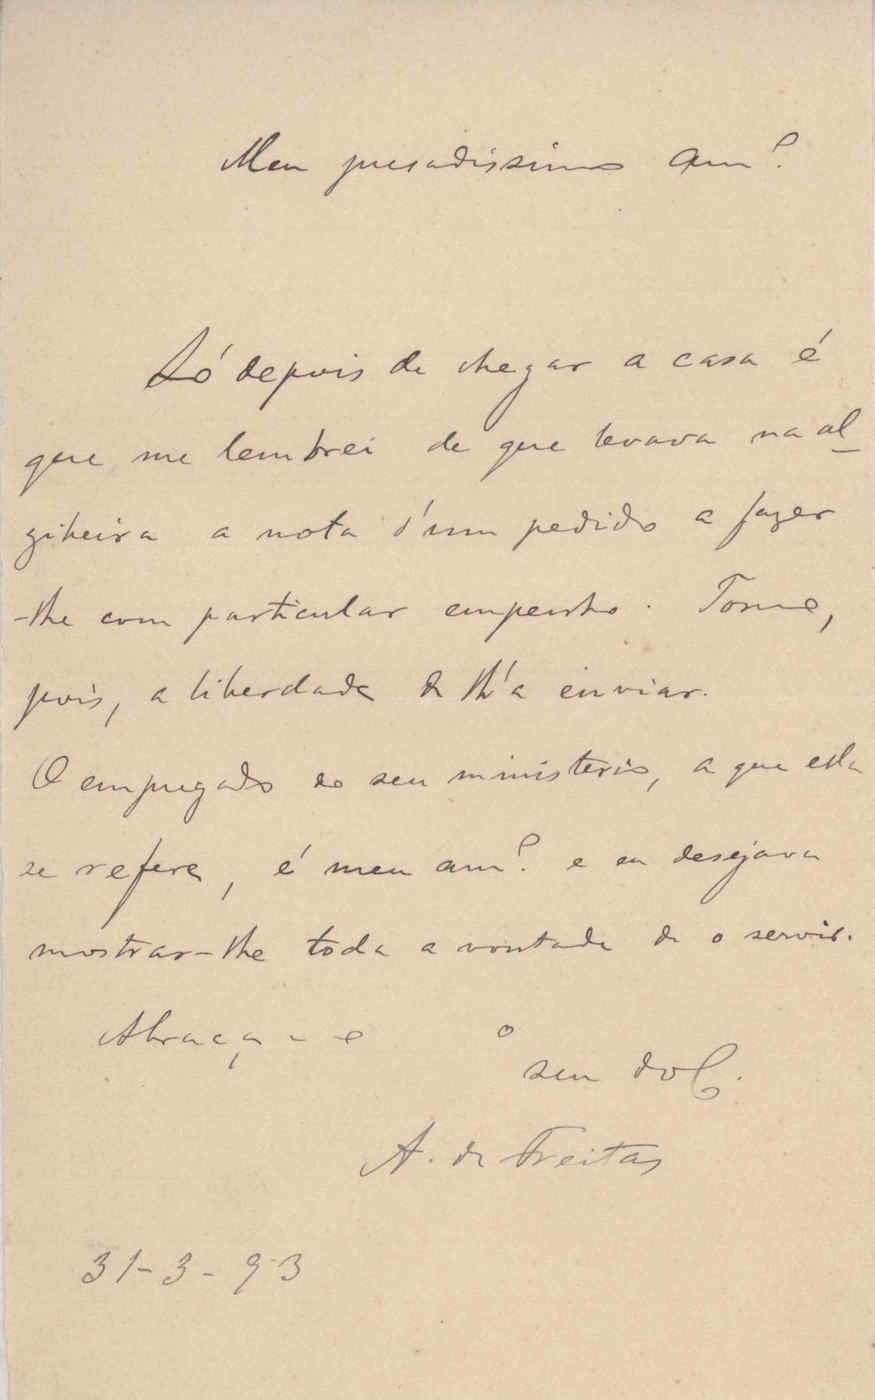 Meu presadissimo Am.º
Só depois de chegar a casa é
que me lembrei de que levava na al-
gibeira a nota d'um pedido a fazer
-lhe com particular empenho. Tomo,
pois, a liberdade de lh'a enviar.
O empregado do seu ministerio, a que ella
se refere, é meu am.º e eu desejava
mostrar-lhe toda a vontade de o servir.
Abraça-o o
seu
A. de Freitas
31-3-93